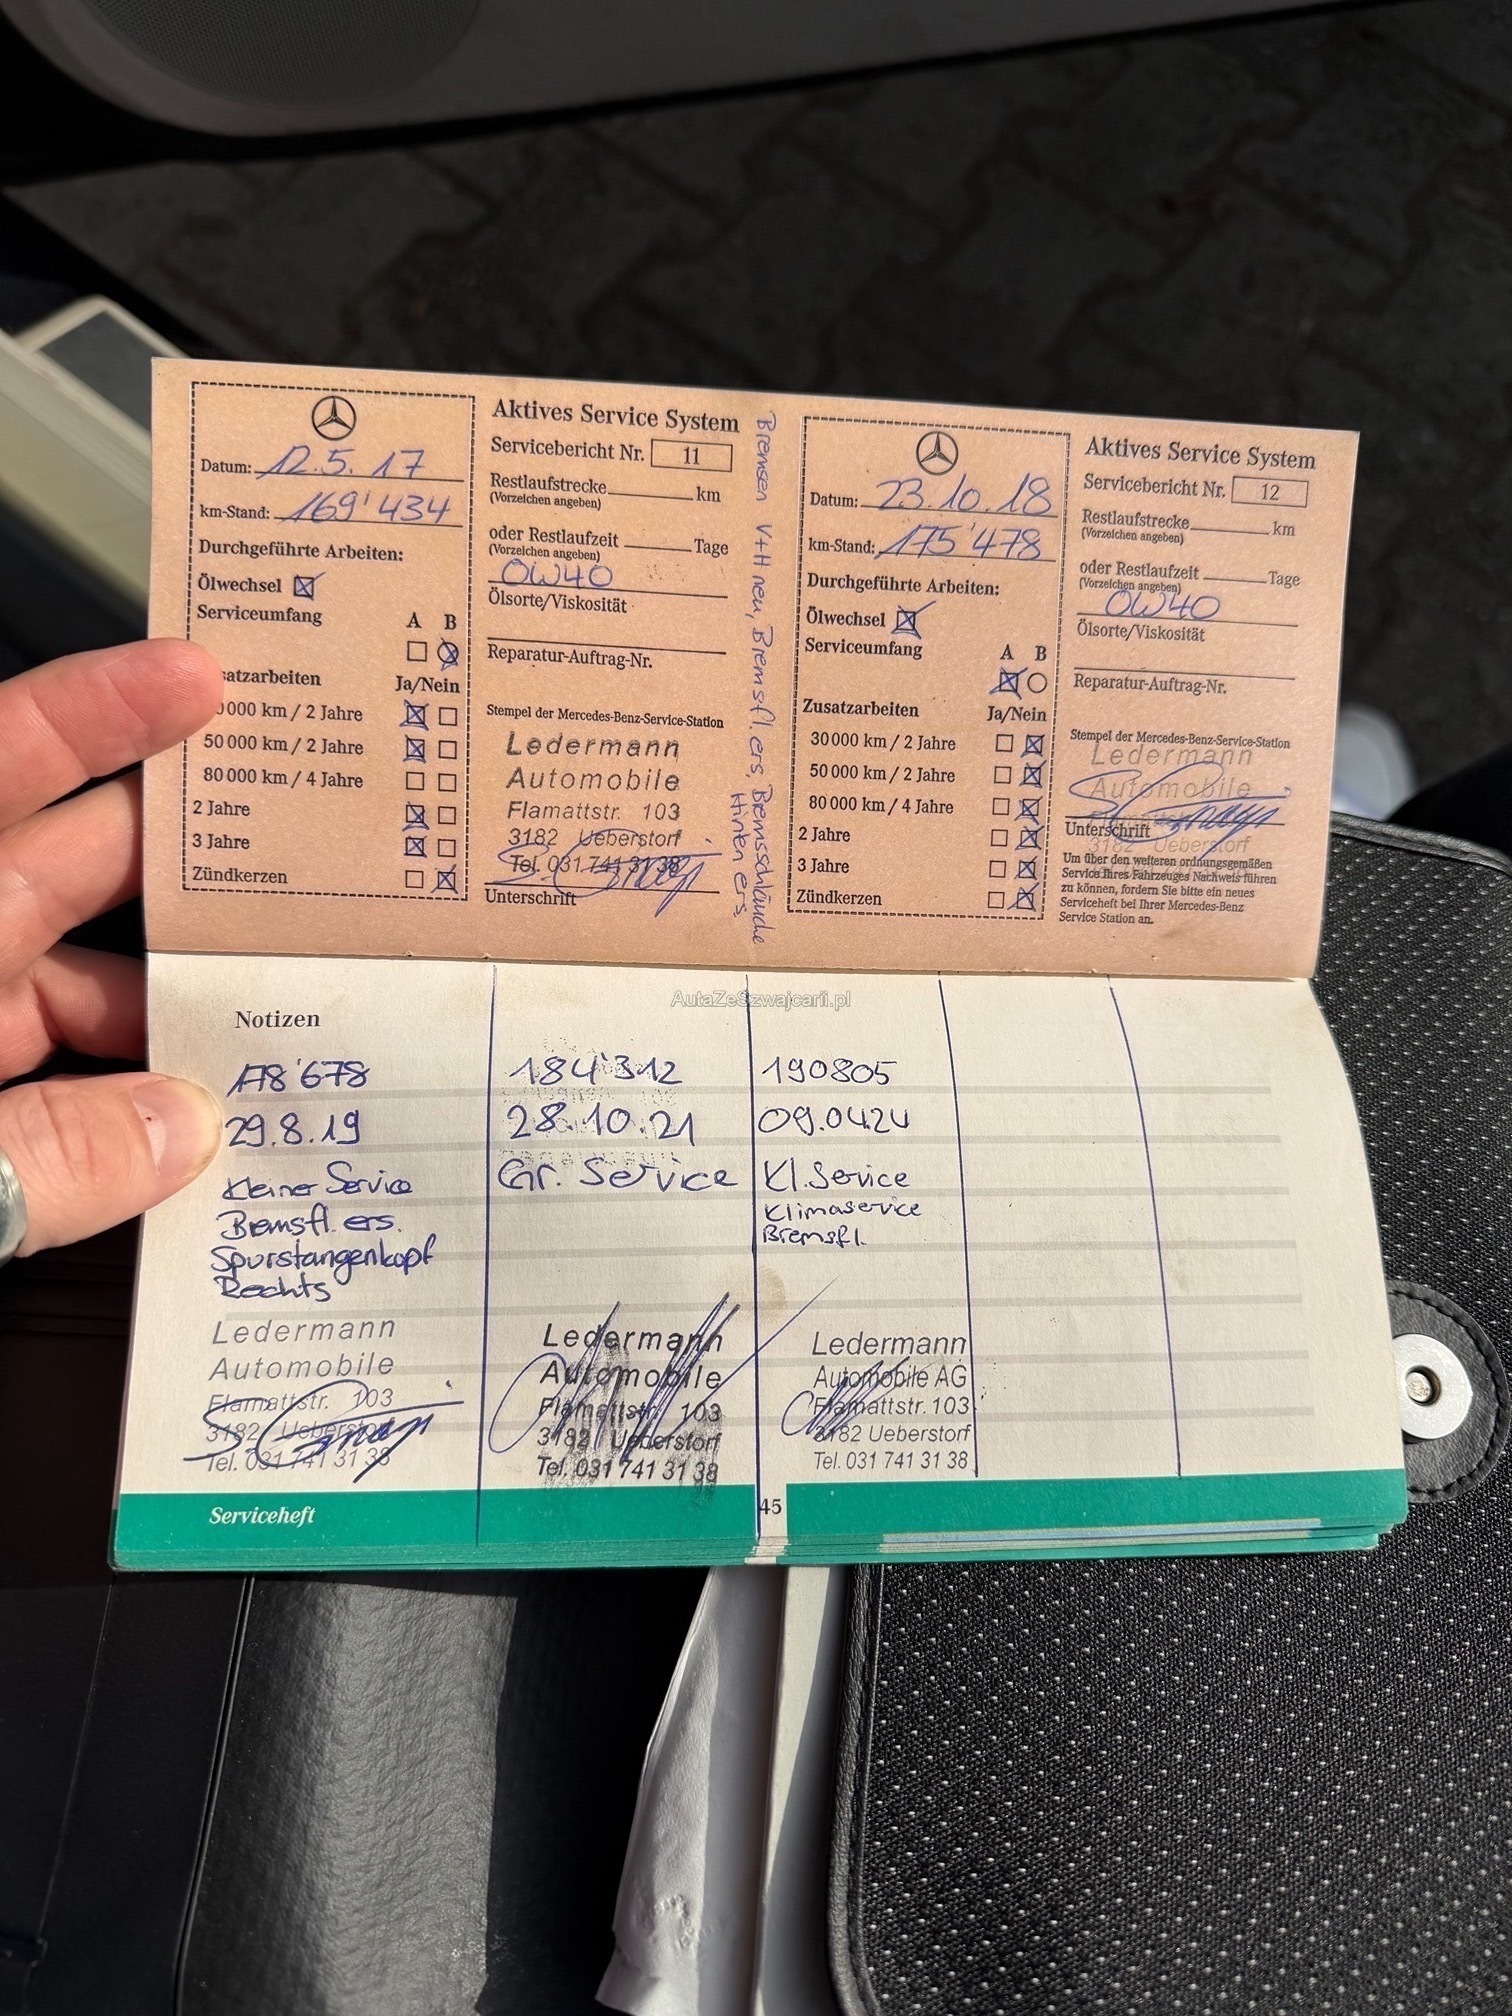 Datum: 12.5.17
km-Stand: 169'434
Durchgeführte Arbeiten:
Ölwechsel
Serviceumfang
A B
satzarbeiten
Ja/Nein
0000 km / 2 Jahre
50 000 km / 2 Jahre
80 000 km / 4 Jahre
2 Jahre
3 Jahre
Zündkerzen
Aktives Service System
Servicebericht Nr. 11
Restlaufstrecke km
(Vorzeichen angeben)
oder Restlaufzeit Tage
(Vorzeichen angeben)
0W40
Ölsorte/Viskosität
Reparatur-Auftrag-Nr.
Stempel der Mercedes-Benz-Service-Station
Ledermann
Automobile
Flamattstr. 103
3182 Ueberstorf
Tel. 031 741 31 38
Unterschrift
Bremsen V+H neu, Bremsfl. ers. Bremsschläuche
Hinten ers.
Datum: 23.10.18
km-Stand: 175'478
Durchgeführte Arbeiten:
Ölwechsel
Serviceumfang
A B
Zusatzarbeiten
Ja/Nein
30 000 km / 2 Jahre
50 000 km / 2 Jahre
80 000 km / 4 Jahre
2 Jahre
3 Jahre
Zündkerzen
Aktives Service System
Servicebericht Nr. 12
Restlaufstrecke km
(Vorzeichen angeben)
oder Restlaufzeit Tage
(Vorzeichen angeben)
0W40
Ölsorte/Viskosität
Reparatur-Auftrag-Nr.
Stempel der Mercedes-Benz-Service-Station
Ledermann
Automobile
Unterschrift
3182 Ueberstorf
Um über den weiteren ordnungsgemäßen
Service Ihres Fahrzeuges Nachweis führen
zu können, fordern Sie bitte ein neues
Serviceheft bei Ihrer Mercedes-Benz
Service Station an.
AutaZeSzwajcarii.pl
Notizen
178'678
29.8.19
Kleiner Service
Bremsfl. ers.
Spurstangenkopf
Rechts
Ledermann
Automobile
Flamattstr. 103
3182 Ueberstorf
Tel. 031 741 31 38
184'312
28.10.21
Gr. Service
Ledermann
Automobile
Flamattstr. 103
3182 Ueberstorf
Tel. 031 741 31 38
190805
09.04.24
Kl. Service
Klimaservice
Bremsfl.
Ledermann
Automobile AG
Flamattstr. 103
3182 Ueberstorf
Tel. 031 741 31 38
Serviceheft
45